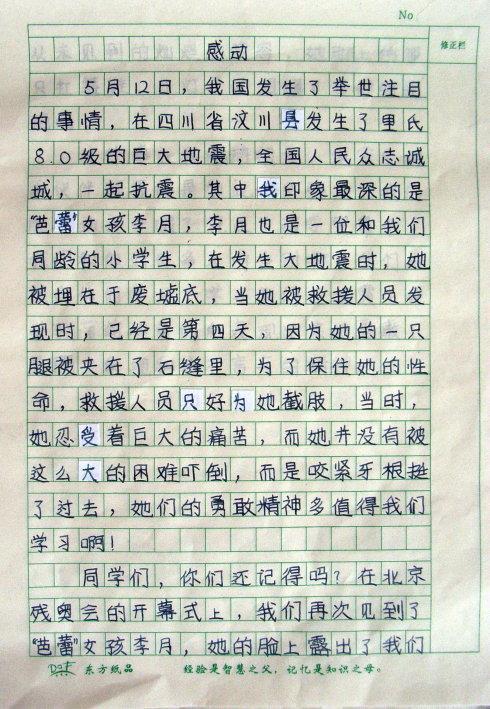 No
修正栏
感动
5月12日，我国发生了举世注目
的事情，在四川省汶川县发生了里氏
8.0级的巨大地震，全国人民众志诚
城，一起抗震。其中我印象最深的是
“芭蕾”女孩李月，李月也是一位和我们
同龄的小学生，在发生大地震时，她
被埋在于废墟底，当她被救援人员发
现时，已经是第四天，因为她的一只
腿被夹在了石缝里，为了保住她的性
命，救援人员只好为她截肢，当时，
她忍受着巨大的痛苦，而她并没有被
这么大的困难吓倒，而是咬紧牙根挺
了过去，她们的勇敢精神多值得我们
学习啊！
同学们，你们还记得吗？在北京
残奥会的开幕式上，我们再次见到了
“芭蕾”女孩李月，她的脸上露出了我们
东方纸品 经验是智慧之父，记忆是知识之母。